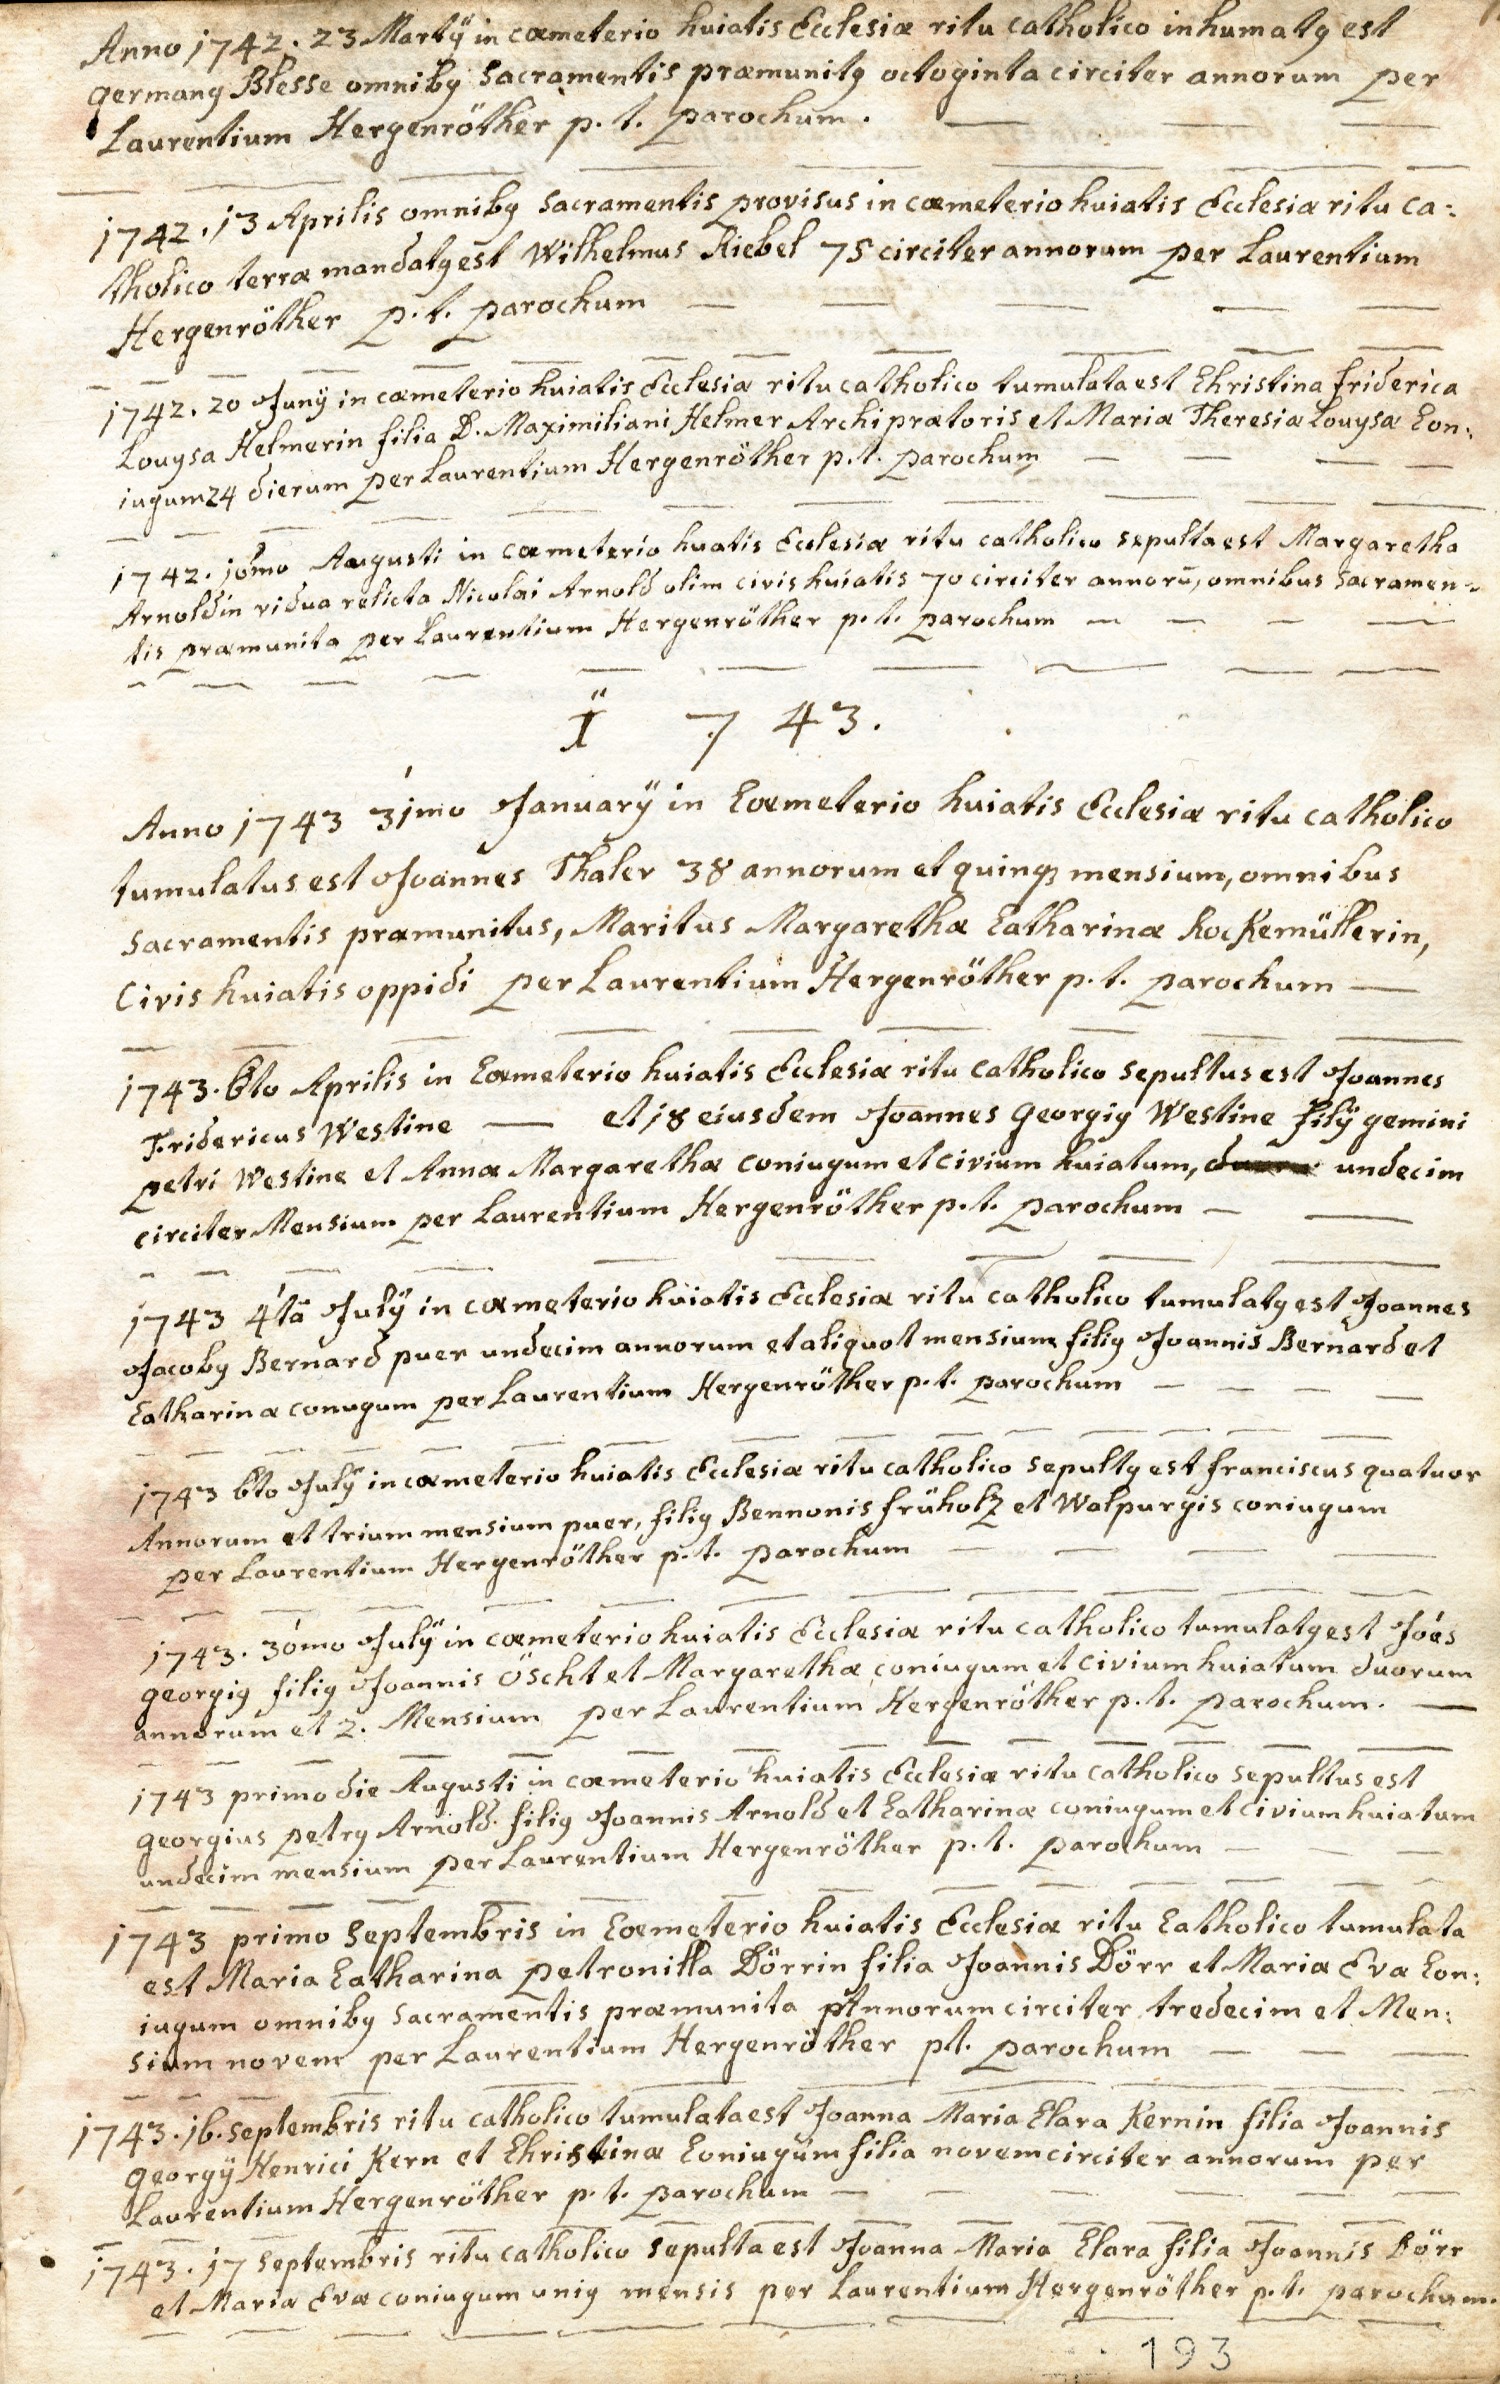 Anno 1742. 23 Martÿ in cœmeterio huiatis Ecclesiæ ritu catholico inhumatg est
germang Blesse omnibg sacramentis præmunitg octoginta circiter annorum per
Laurentium Hergenröther p. t. parochum. — — —
1742. 13 Aprilis omnibg sacramentis provisus in cœmeterio huiatis Ecclesiæ ritu ca:
tholico terræ mandatg est Wilhelmus Riebel 75 circiter annorum per Laurentium
Hergenröther p. t. parochum — — — — —
1742. 20 Junÿ in cœmeterio huiatis Ecclesiæ ritu catholico tumulata est Christina friderica
Louysa Helmerin filia D. Maximiliani Helmer Archiprætoris et Mariæ Theresiæ Louysæ Con:
iugum 24 dierum per Laurentium Hergenröther p. t. parochum — — — —
1742. 10mo Augusti in cœmeterio huatis Ecclesiæ ritu catholico sepulta est Margaretha
Arnoldin vidua relicta Nicolai Arnold olim civis huiatis 70 circiter annorū, omnibus sacramen:
tis præmunita per Laurentium Hergenröther p. t. parochum — — — —
1743.
Anno 1743 31mo Januarÿ in Cœmeterio huiatis Ecclesiæ ritu catholico
tumulatus est Joannes Thaler 38 annorum et quinq3 mensium, omnibus
sacramentis præmunitus, Maritus Margarethæ Catharinæ Rockemüllerin,
Civis huiatis oppidi per Laurentium Hergenröther p. t. parochum —
1743. 6to Aprilis in Cœmeterio huiatis Ecclesiæ ritu catholico sepultus est Joannes
Fridericus Westine — et 18 eiusdem Joannes georgig Westine filÿ gemini
petri Westine et Annæ Margarethæ coniugum et civium huiatum, undecim
circiter Mensium per Laurentium Hergenröther p. t. parochum — —
1743 4ta Julÿ in cœmeterio huiatis Ecclesiæ ritu catholico tumulatg est Joannes
Jacobg Bernard puer undecim annorum et aliquot mensium filig Joannis Bernard et
Catharinæ conugum per Laurentium Hergenröther p. t. parochum — — — —
1743 6to Julÿ in cœmeterio huiatis Ecclesiæ ritu catholico sepultg est franciscus quatuor
Annorum et trium mensium puer, filig Bennonis früholz et Walpurgis coniugum
per Laurentium Hergenröther p. t. parochum — — — —
1743. 30mo Julÿ in cœmeterio huiatis Ecclesiæ ritu catholico tumulatg est Joës
georgig filig Joannis Öscht et Margarethæ coniugum et civium huiatum duorum
annorum et 2. Mensium per Laurentium Hergenröther p. t. parochum. —
1743 primo die Augusti in cœmeterio huiatis Ecclesiæ ritu catholico sepultus est
georgius petrg Arnold filig Joannis Arnold et Catharinæ coniugum et civium huiatum
undecim mensium per Laurentium Hergenröther p. t. parochum — — —
1743 primo Septembris in Cœmeterio huiatis Ecclesiæ ritu Catholico tumulata
est Maria Catharina petronilla Dörrin filia Joannis Dörr et Mariæ Evæ Con:
iugum omnibg sacramentis præmunita Annorum circiter tredecim et Men:
sium novem per Laurentium Hergenröther pt. parochum — — —
1743. 16. septembris ritu catholico tumulata est Joanna Maria Clara Kernin filia Joannis
georgÿ Henrici Kern et Christinæ Coniugum filia novem circiter annorum per
Laurentium Hergenröther p. t. parochum — — — — — —
1743. 17 septembris ritu catholico sepulta est Joanna Maria Clara filia Joannis Dörr
et Mariæ Evæ coniugum unig mensis per Laurentium Hergenröther p. t. parochum.
193